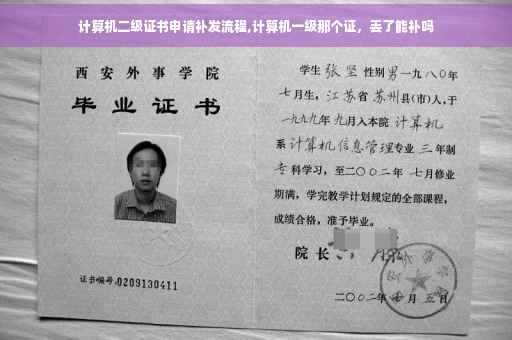 计算机二级证书申请补发流程,计算机一级那个证，丢了能补吗
西安外事学院
毕业证书
证书编号:0209130411
学生张坚性别男一九八〇年
七月生，江苏省苏州县(市)人,于
一九九九年九月入本院计算机
系计算机信息管理专业三年制
专科学习，至二〇〇二年七月修业
期满，学完教学计划规定的全部课程，
成绩合格，准予毕业。
院长
二〇〇二年 月五日